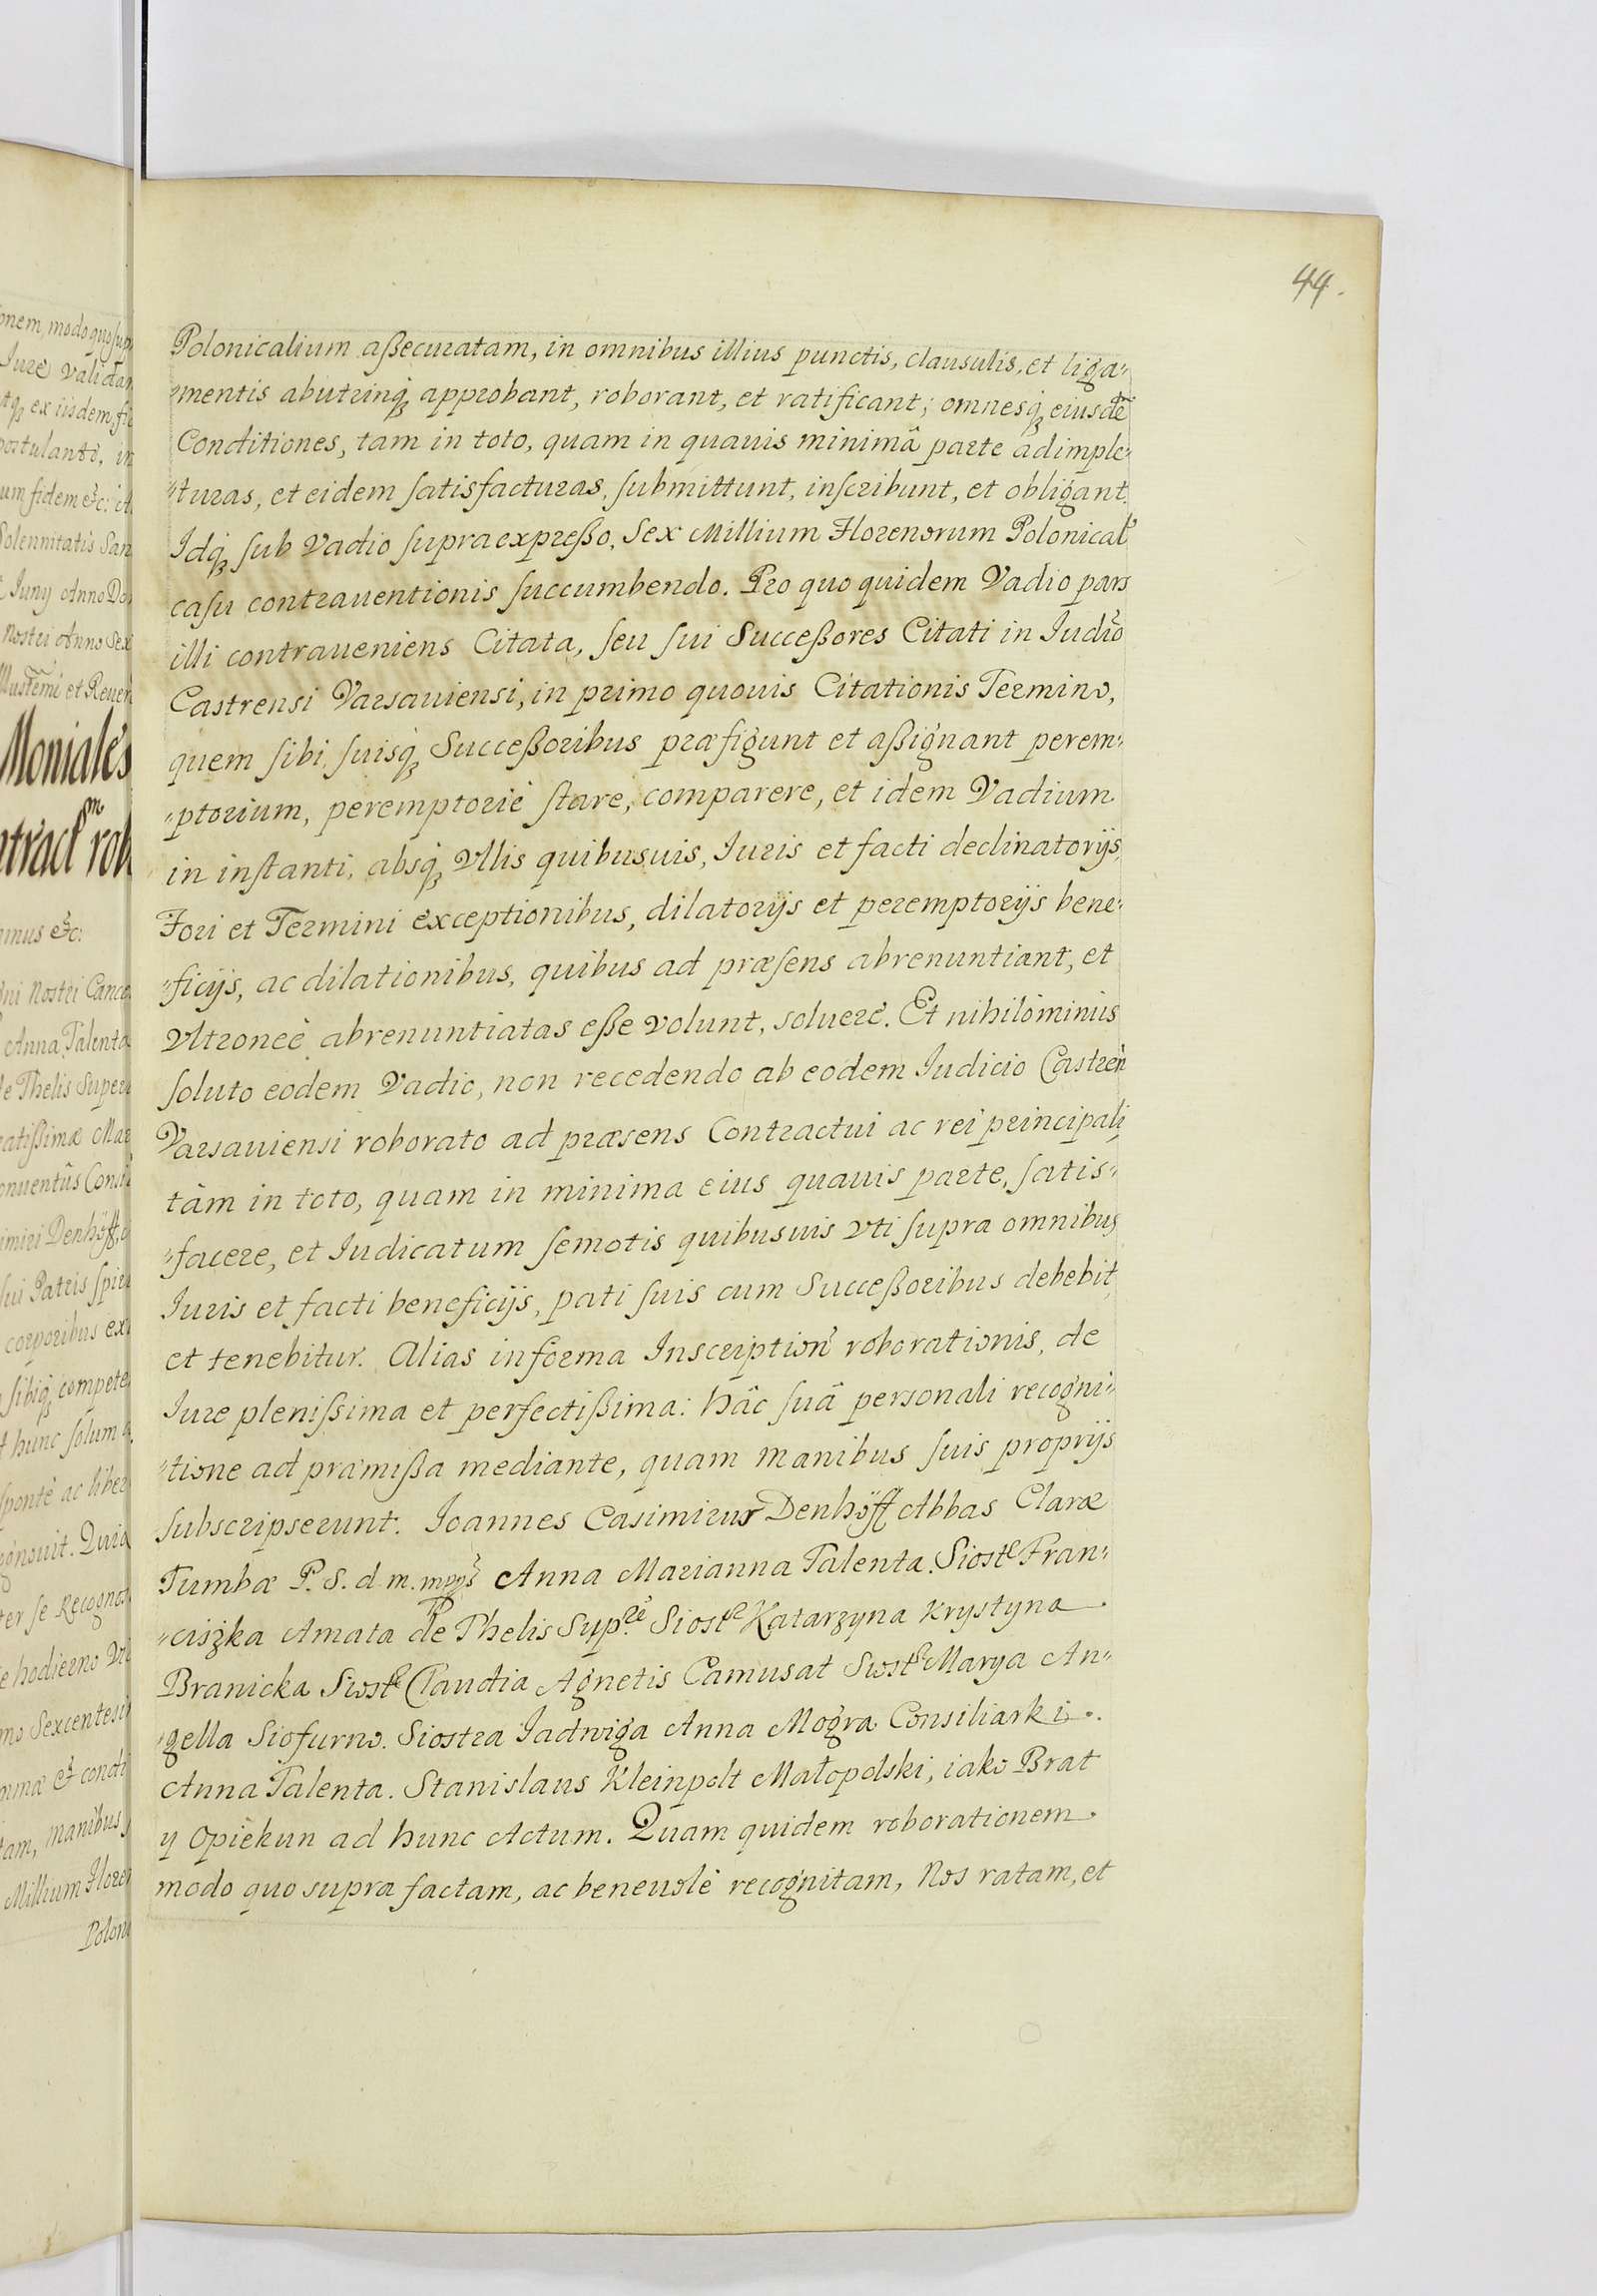 44.
Polonicalium aßecuratam, in omnibus illius punctis, clausulis, et liga„
„mentis abutrinq́ʒ approbant, roborant, et ratificant; omnesq́ʒ eiusdẽ
Conditiones, tam in toto, quam in quauis minimâ parte adimple„
„turas, et eidem satisfacturas, submittunt, inscribunt, et obligant.
Idq́ʒ sub Vadio supraexpreßo, Sex Millium Florenorum Polonical̃
casu contrauentionis succumbendo. Pro quo quidem Vadio pars
illi contraueniens Citata, seu sui Succeßores Citati in Iudĩo
Castrensi Varsauiensi, in primo quouis Citationis Termino,
quem sibi, suisq́ʒ Succeßoribus præfigunt et aßignant perem„
„ptorium, peremptoriè stare, comparere, et idem Vadium
in instanti, absq́ʒ Vllis quibusuis, Iuris et facti declinatorijs,
Fori et Termini exceptionibus, dilatorijs et peremptorijs bene„
„ficijs, ac dilationibus, quibus ad præsens abrenuntiant, et
Vltroneè abrenuntiatas eße volunt, soluere. Et nihilominùs
soluto eodem Vadio, non recedendo ab eodem Iudicio Castreñ
Varsauiensi roborato ad præsens Contractui ac rei principali
tàm in toto, quam in minima eius quauis parte, satis„
„facere, et Iudicatum semotis quibusuis vti supra omnibus
Iuris et facti beneficijs, pati suis cum Succeßoribus debebit,
et tenebitur. Alias in forma Inscriptioñ roborationis, de
Iure plenißima et perfectißima: hâc suâ personali recogni„
„tione ad præmißa mediante, quam manibus suis proprijs
subscripserunt. Ioannes Casimirus Denhöff Abbas Claræ
Tumbæ P. S. d. m. mpp̃s Anna Marianna Talenta. Siostᵃ Fran„
„ciszka Amata de Thelis Sup.ʳᵉ Siostᵃ Katarzyna Krystyna
Branicka Siostᵃ Claudia Agnetis Camusat Siostᵃ Marya An„
„gella Siofurno. Siostra Iadwiga Anna Mogra Consiliarki.
Anna Talenta. Stanislaus Kleinpolt Małopolski, iako Brat
y Opiekun ad hunc Actum. Quam quidem roborationem
modo quo supra factam, ac beneuolè recognitam, Nos ratam, et